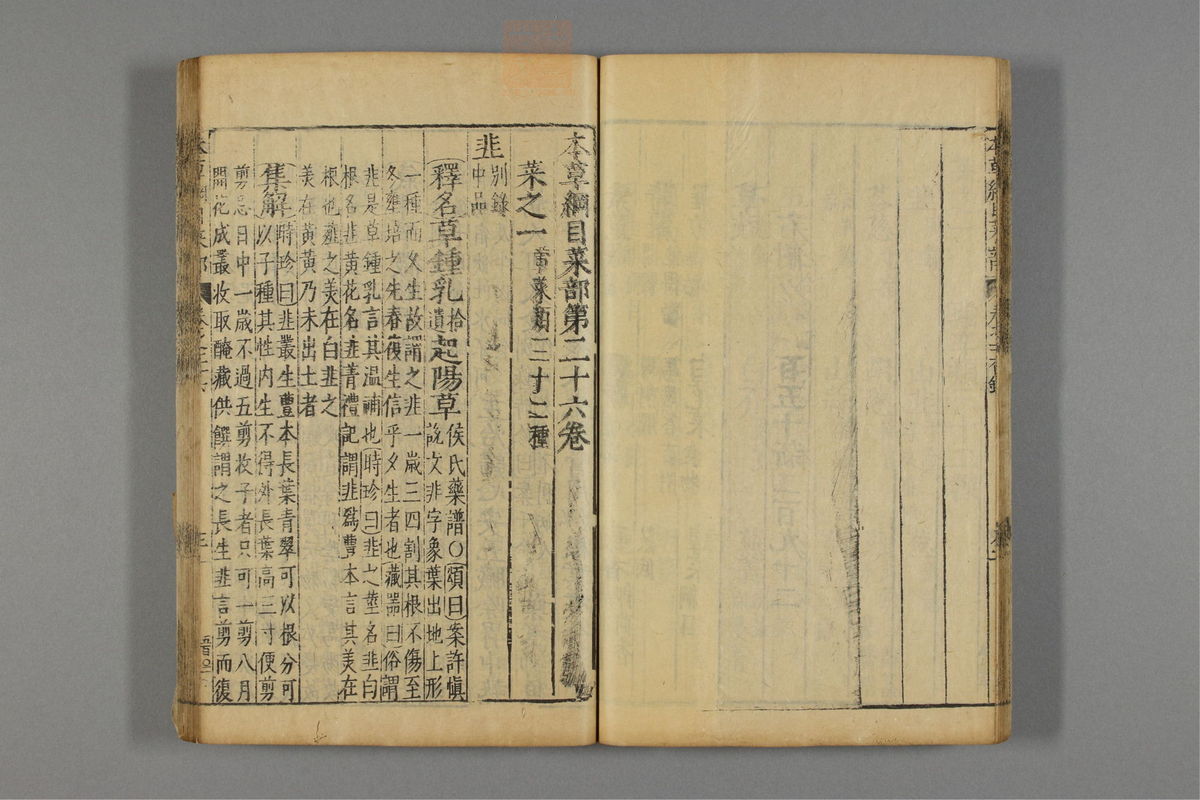 本草綱目菜部第二十六卷
菜之一 葷菜類三十二種
韭
別錄
中品
釋名草鍾乳拾遺起陽草侯氏藥譜○頌曰案許愼
說文韭字象葉出地上形
一種而久生故謂之韭一歲三四割其根不傷至
冬壅培之先春復生信乎久生者也藏器曰俗謂
韭是草鍾乳言其溫補也時珍曰韭之莖名韭白
根名韭黃花名韭菁禮記謂韭爲豐本言其美在
根也薤之美在白韭之
美在黃黃乃未出土者
集解時珍曰韭叢生豐本長葉青翠可以根分可
以子種其性內生不得外長葉高三寸便剪
剪忌日中一歲不過五剪收子者只可一剪八月
開花成叢收取醃藏供饌謂之長生韭言剪而復
本草綱目菜部